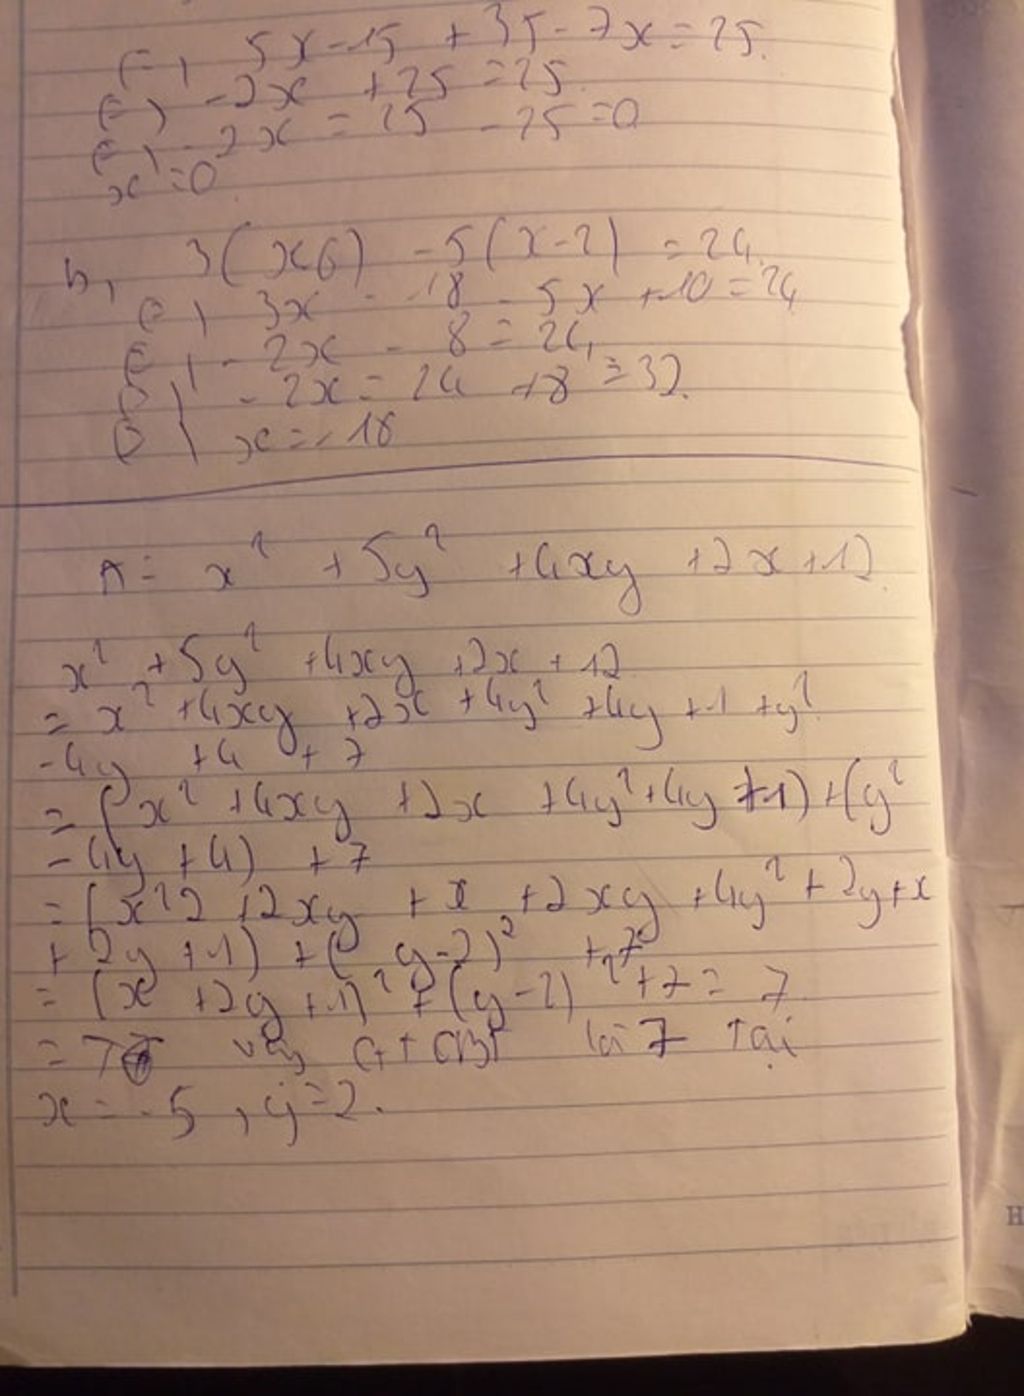 5x-15 + 35-7x=25.
-2x +25 =25
-2x = 25 -25=0
x=0
b, 3(x6) -5(x-2) =24.
3x - 18 - 5x +10=24
- 2x - 8 = 24
- 2x= 24 +8 =32.
x=-18
A= x² +5y² +4xy +2x+12
x² +5y² +4xy +2x + 12
= x² +4xy +2x +4y² +4y +1 +y²
-4y +4 + 7
= (x² +4xy +2x +4y²+4y +1) +(y²
-4y +4) +7
=(x²2 +2xy + x +2xy +4y² + 2y+x
+ 2y +1) +( y-2)² +7
= (x +2y +1)² +(y-2)² +7= 7
= 7 vậy là 7 tại
x = -5 , y=2.